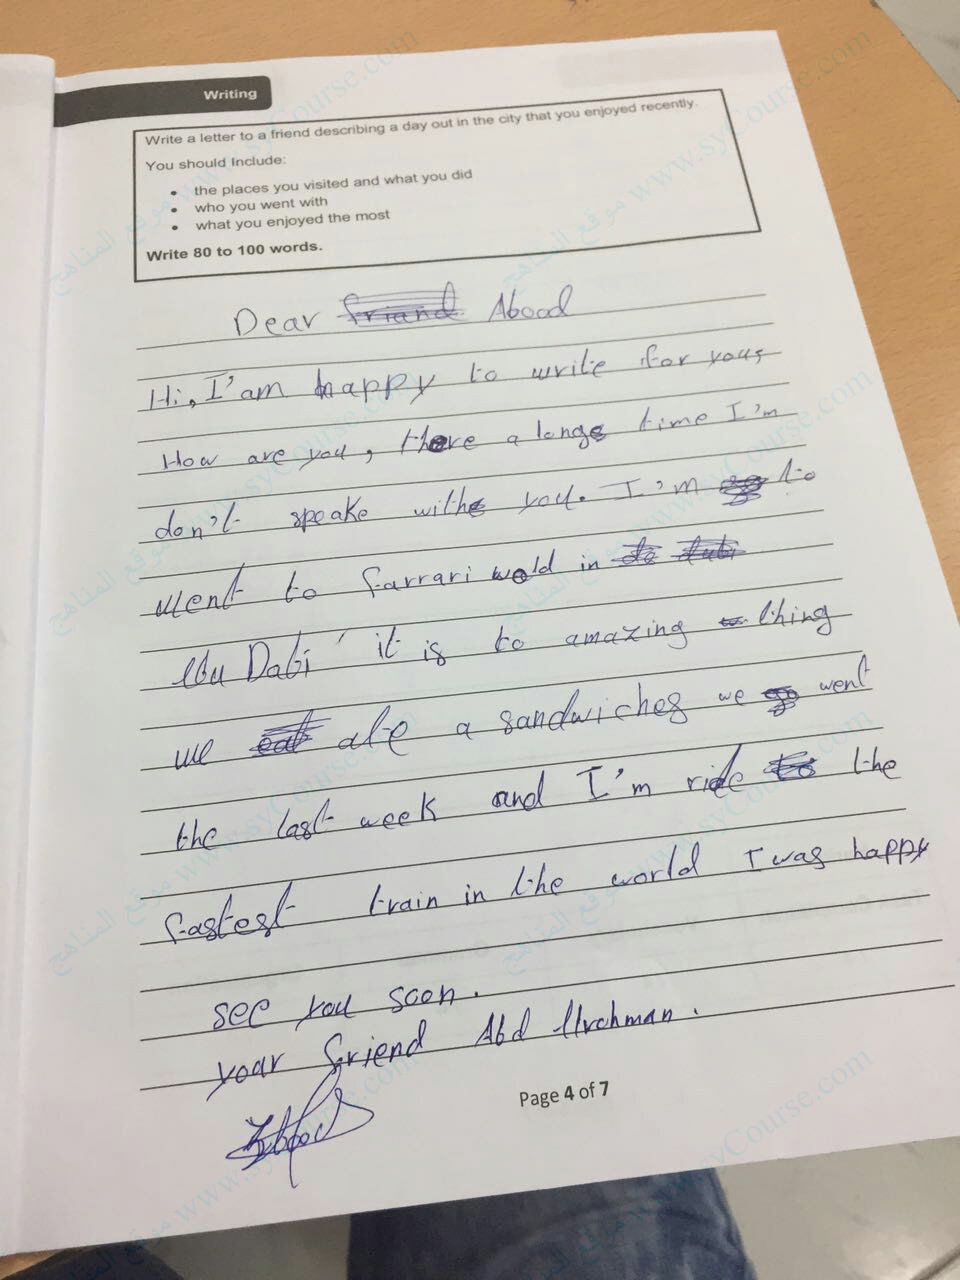 Writing
Write a letter to a friend describing a day out in the city that you enjoyed recently.
You should Include:
• the places you visited and what you did
• who you went with
• what you enjoyed the most
Write 80 to 100 words.
Dear friand Abood
Hi, I'am happy to write for you,
How are you, there a long time I'm
don't speake withe you. I'm go to
went to farrari wold in to dubi
Abu Dabi it is to amazing thing
we eat ate a sandwiches we go went
the last week and I'm ride to the
fastest train in the world I was happy
see you soon.
your friend Abd Urohman.
Page 4 of 7
موقع المناهج www.syCourse.com